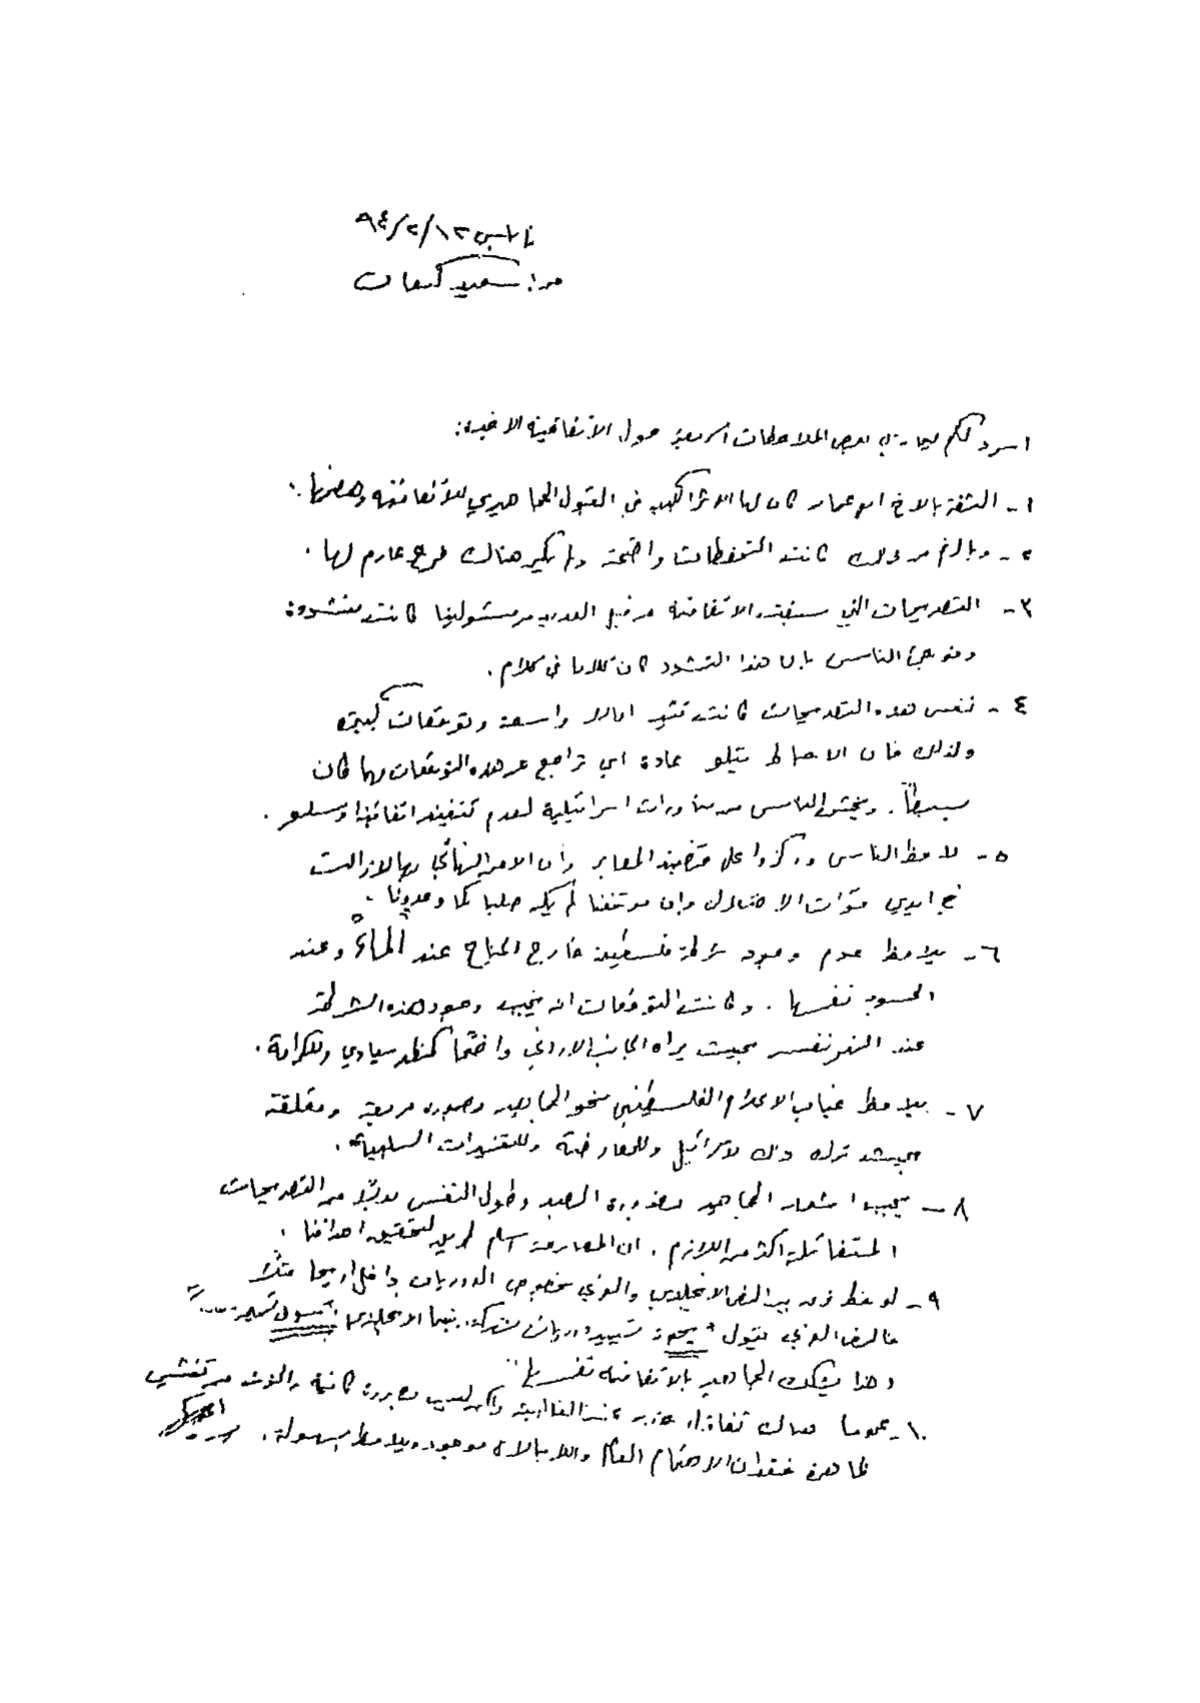 نابلس ١٣/٢/٩٤
من: سعيد كنعان
اسرد لكم فيما يلي بعض الملاحظات السريعة حول الاتفاقية الاخيرة:
١- الثقة بالاخ ابو عمار كان لها الاثر الكبير في القبول الجماهيري للاتفاقية وهضمها.
٢- وبالرغم من ذلك كانت التحفظات واضحة ولم يكن هناك فرح عارم لها.
٣- التصريحات التي سبقت الاتفاقية من قبل العديد من مسئولينا كانت متشددة
وفوجئ الناس بان هذا التشدد كان كلاما في كلام.
٤- نفس هذه التصريحات كانت تثير امالا واسعة وتوقعات كبيرة
ولذلك فان الاحباط يتلو عادة اي تراجع عن هذه التوقعات مهما كان
بسيطاً. ويخشى الناس من مناورات اسرائيلية لعدم تنفيذ اتفاقية اوسلو.
٥- لاحظ الناس وركزوا على قضية المعابر وأن الامر النهائي بها لا زالت
في ايدي قوات الاحتلال وان موقفنا لم يكن صلبا كما وعدونا.
٦- يلاحظ عدم وجود شرطة فلسطينية خارج الجناح عند الماء وعند
الجسور نفسها. وكانت التوقعات انه يجب وجود هذه الشرطة
عند النهر نفسه بحيث يراه الجانب الاردني واضحا كمظهر سيادي وللكرامة.
٧- يلاحظ غياب الاعلام الفلسطيني نحو الجماهير وبصورة مريعة ومقلقة
بحيث ترك ذلك لاسرائيل وللمعارضة وللتفسيرات السلبية.
٨- يجب اشعار الجماهير بضرورة الصبر وطول النفس بدلا من التصريحات
المتفائلة اكثر من اللازم. ان المصارحة اسلم طريق لتحقيق اهدافنا.
٩- لوحظ فرق بين النص الانجليزي والعربي بخصوص الدوريات داخل اريحا مثلاً
فالنص العربي يقول "يجوز تسيير دوريات مشتركة. بينما الانجليزي يقول ..."
وهذا يشكك الجماهير بالاتفاقية نفسها"
١٠- عموما هناك تفاؤل عند الغالبية ولكن ليس بصورة كافية والخوف من تفشي
ظاهرة فقدان الاهتمام العام واللامبالاة موجود ويلاحظ بسهولة.